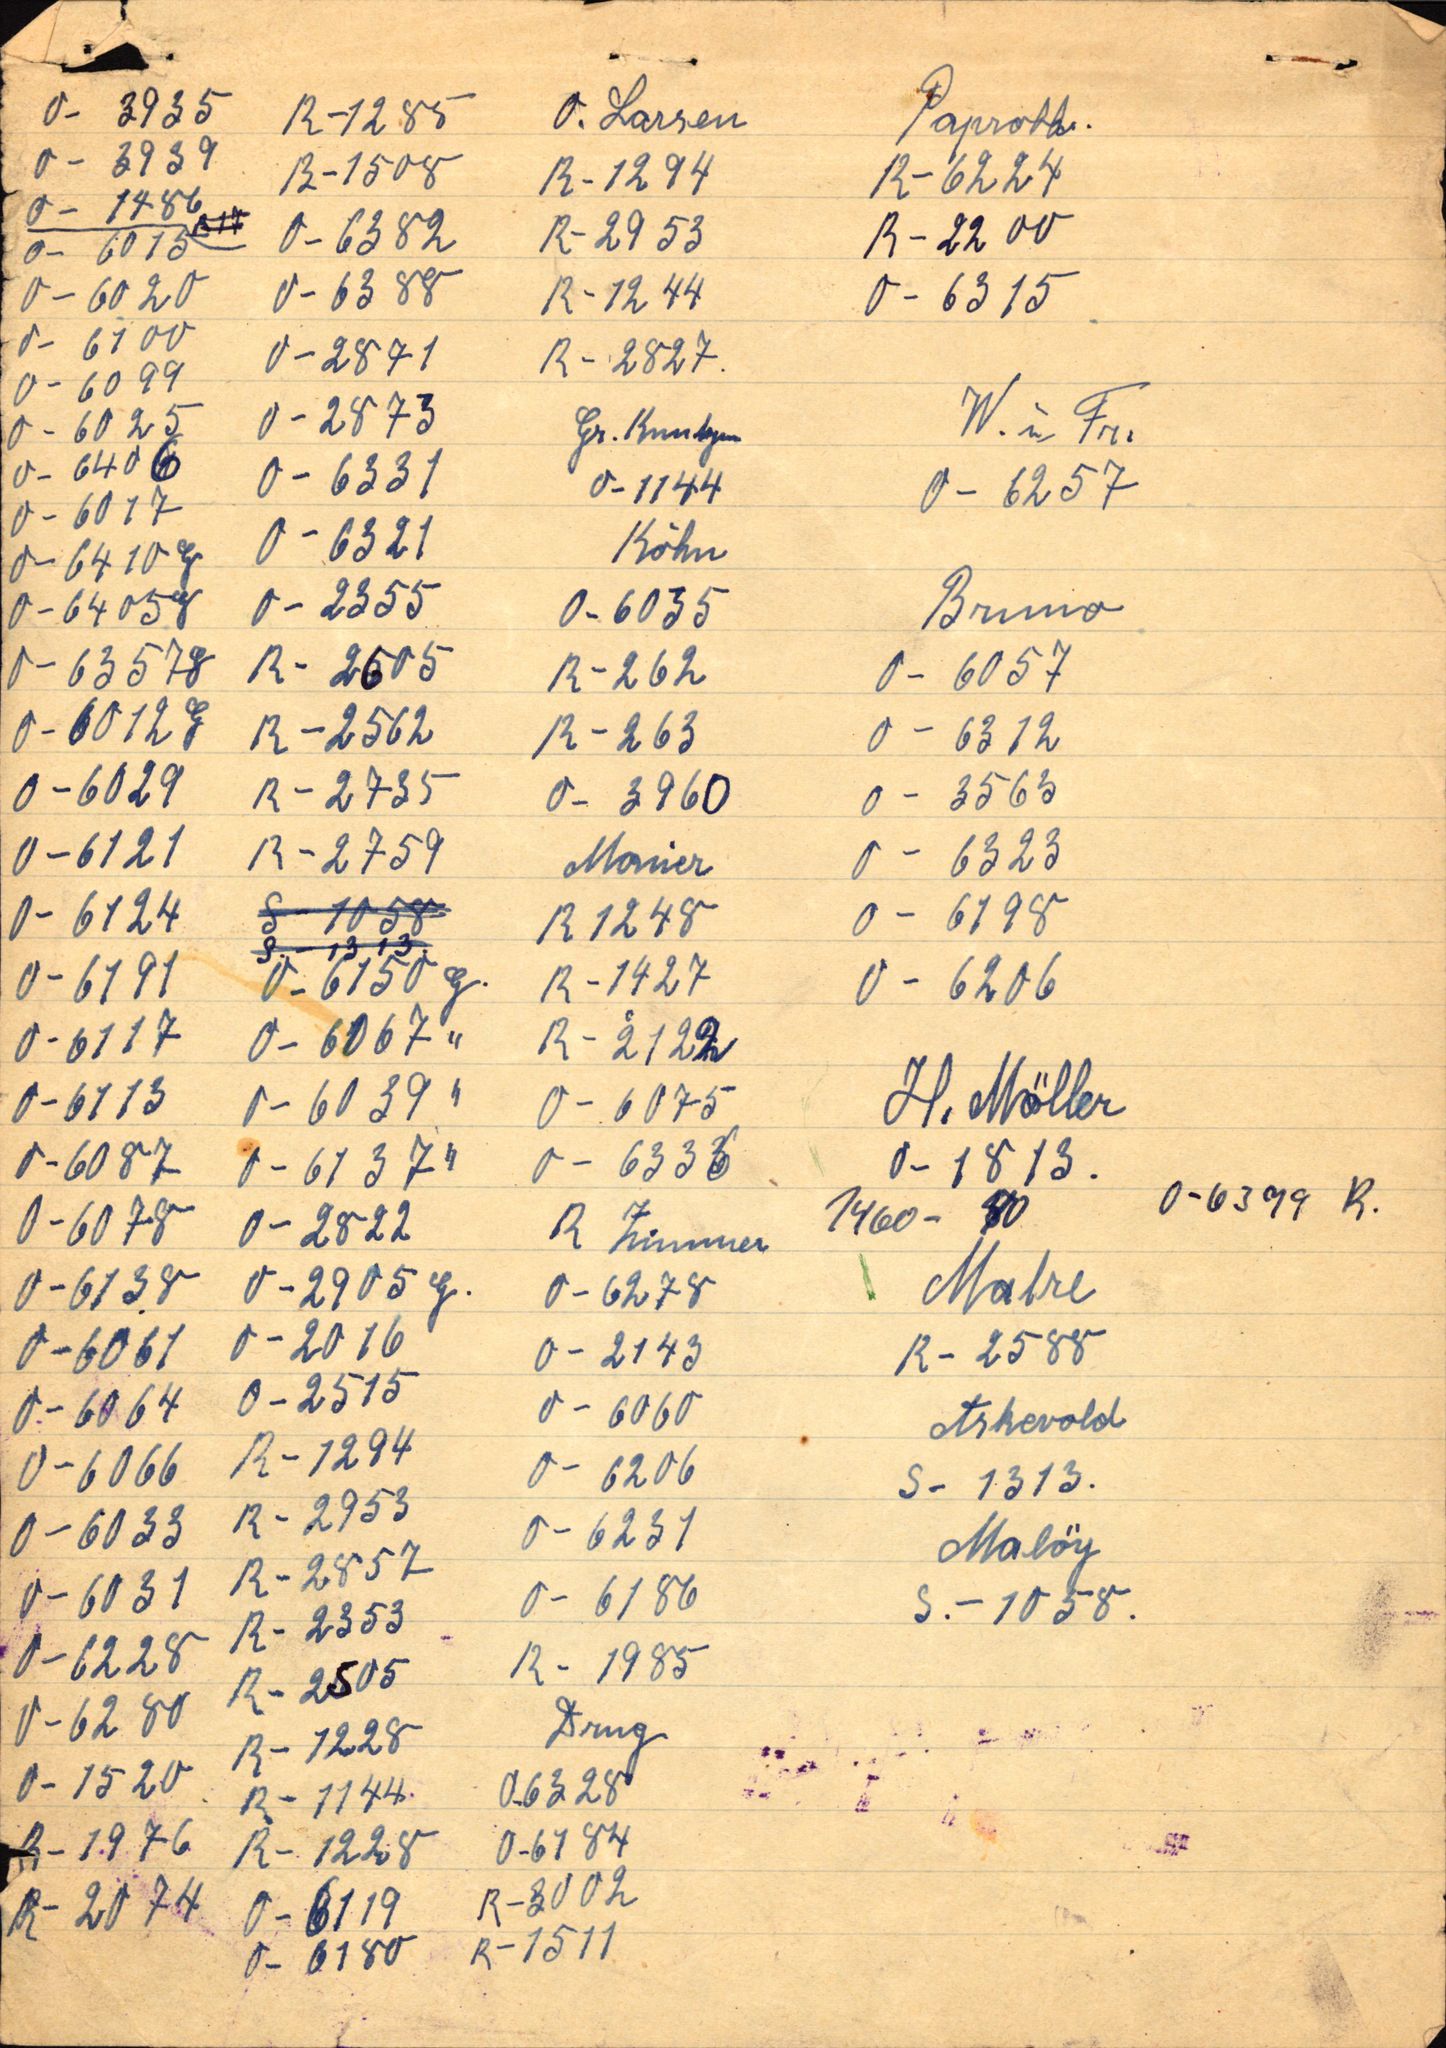 O- 3935
O- 3939
O- 1486
O- 6015
O- 6020
O- 6100
O- 6099
O- 6025
O- 6406
O- 6017
O- 6410 g
O- 6405 g
O- 6357 g
O- 6012 g
O- 6029
O- 6121
O- 6124
O- 6191
O- 6117
O- 6113
O- 6087
O- 6078
O- 6138
O- 6061
O- 6064
O- 6066
O- 6033
O- 6031
O- 6228
O- 6280
O- 1520
R- 1976
R- 2074
R- 1285
R- 1508
O- 6382
O- 6388
O- 2871
O- 2873
O- 6331
O- 6321
O- 2355
R- 2605
R- 2562
R- 2735
R- 2759
S- 1058
S.- 1313.
O- 6150 g.
O- 6067 "
O- 6039 "
O- 6137 "
O- 2822
O- 2905 g.
O- 2016
O- 2515
R- 1294
R- 2953
R- 2857
R- 2353
R- 2505
R- 1228
R- 1144.
R- 1228
O- 6119
O- 6180
O. Larsen
R- 1294
R- 2953
R- 1244
R- 2827.
Gr.
O- 1144
Köhn
O- 6035
R- 262
R- 263
O- 3960
Monier
R 1248
R- 1427
R- 2122
O- 6075
O- 6336
R Zimmer
O- 6278
O- 2143
O- 6060
O- 6206
O- 6231
O- 6186
R- 1985
Drug
O-6328
O-6184
R-3002
R-1511
Paprott.
R- 6224
R- 2200
O- 6315
W. in Fr.
O- 6257
Bruno
O- 6057
O- 6312
O- 3563
O- 6323
O- 6198
O- 6206
H. Möller
O- 1813.
1460-
O-6399 R.
Matre
R- 2588
Askevold
S- 1313.
Malöy
S.- 1058.